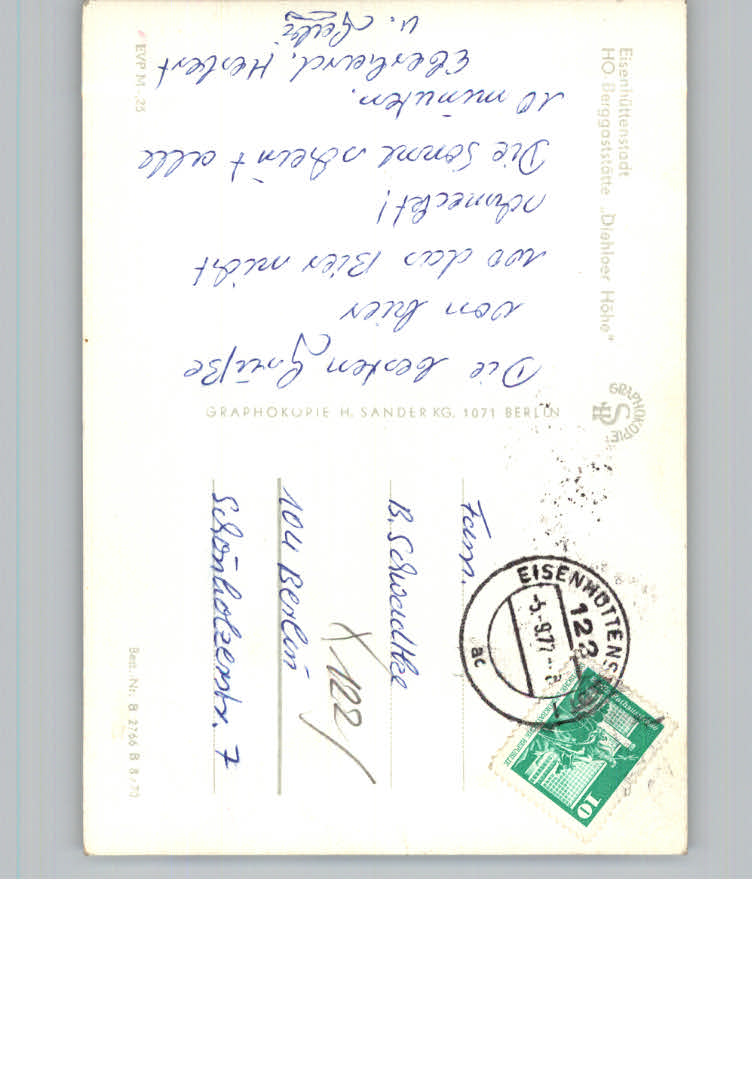 Eisenhüttenstadt
HO Berggaststätte „Diehloer Höhe“
GRAPHOKOPIE
GRAPHOKOPIE H. SANDER KG, 1071 BERLIN
EVP M -,25
Best.-Nr. B 2766 B 8/70
Die besten Grüße
von hier
wo das Bier nicht
schmeckt!
Die Sonne scheint alle
10 minuten.
Eberhard, Herbert
u.
EISENHÜTTENS
122
-5.-9.77
ac
10
DEUTSCHE DEMOKRATISCHE REPUBLIK
Fam.
B. Schwadtke
104 Berlin
Schönholzerstr. 7
X 122/